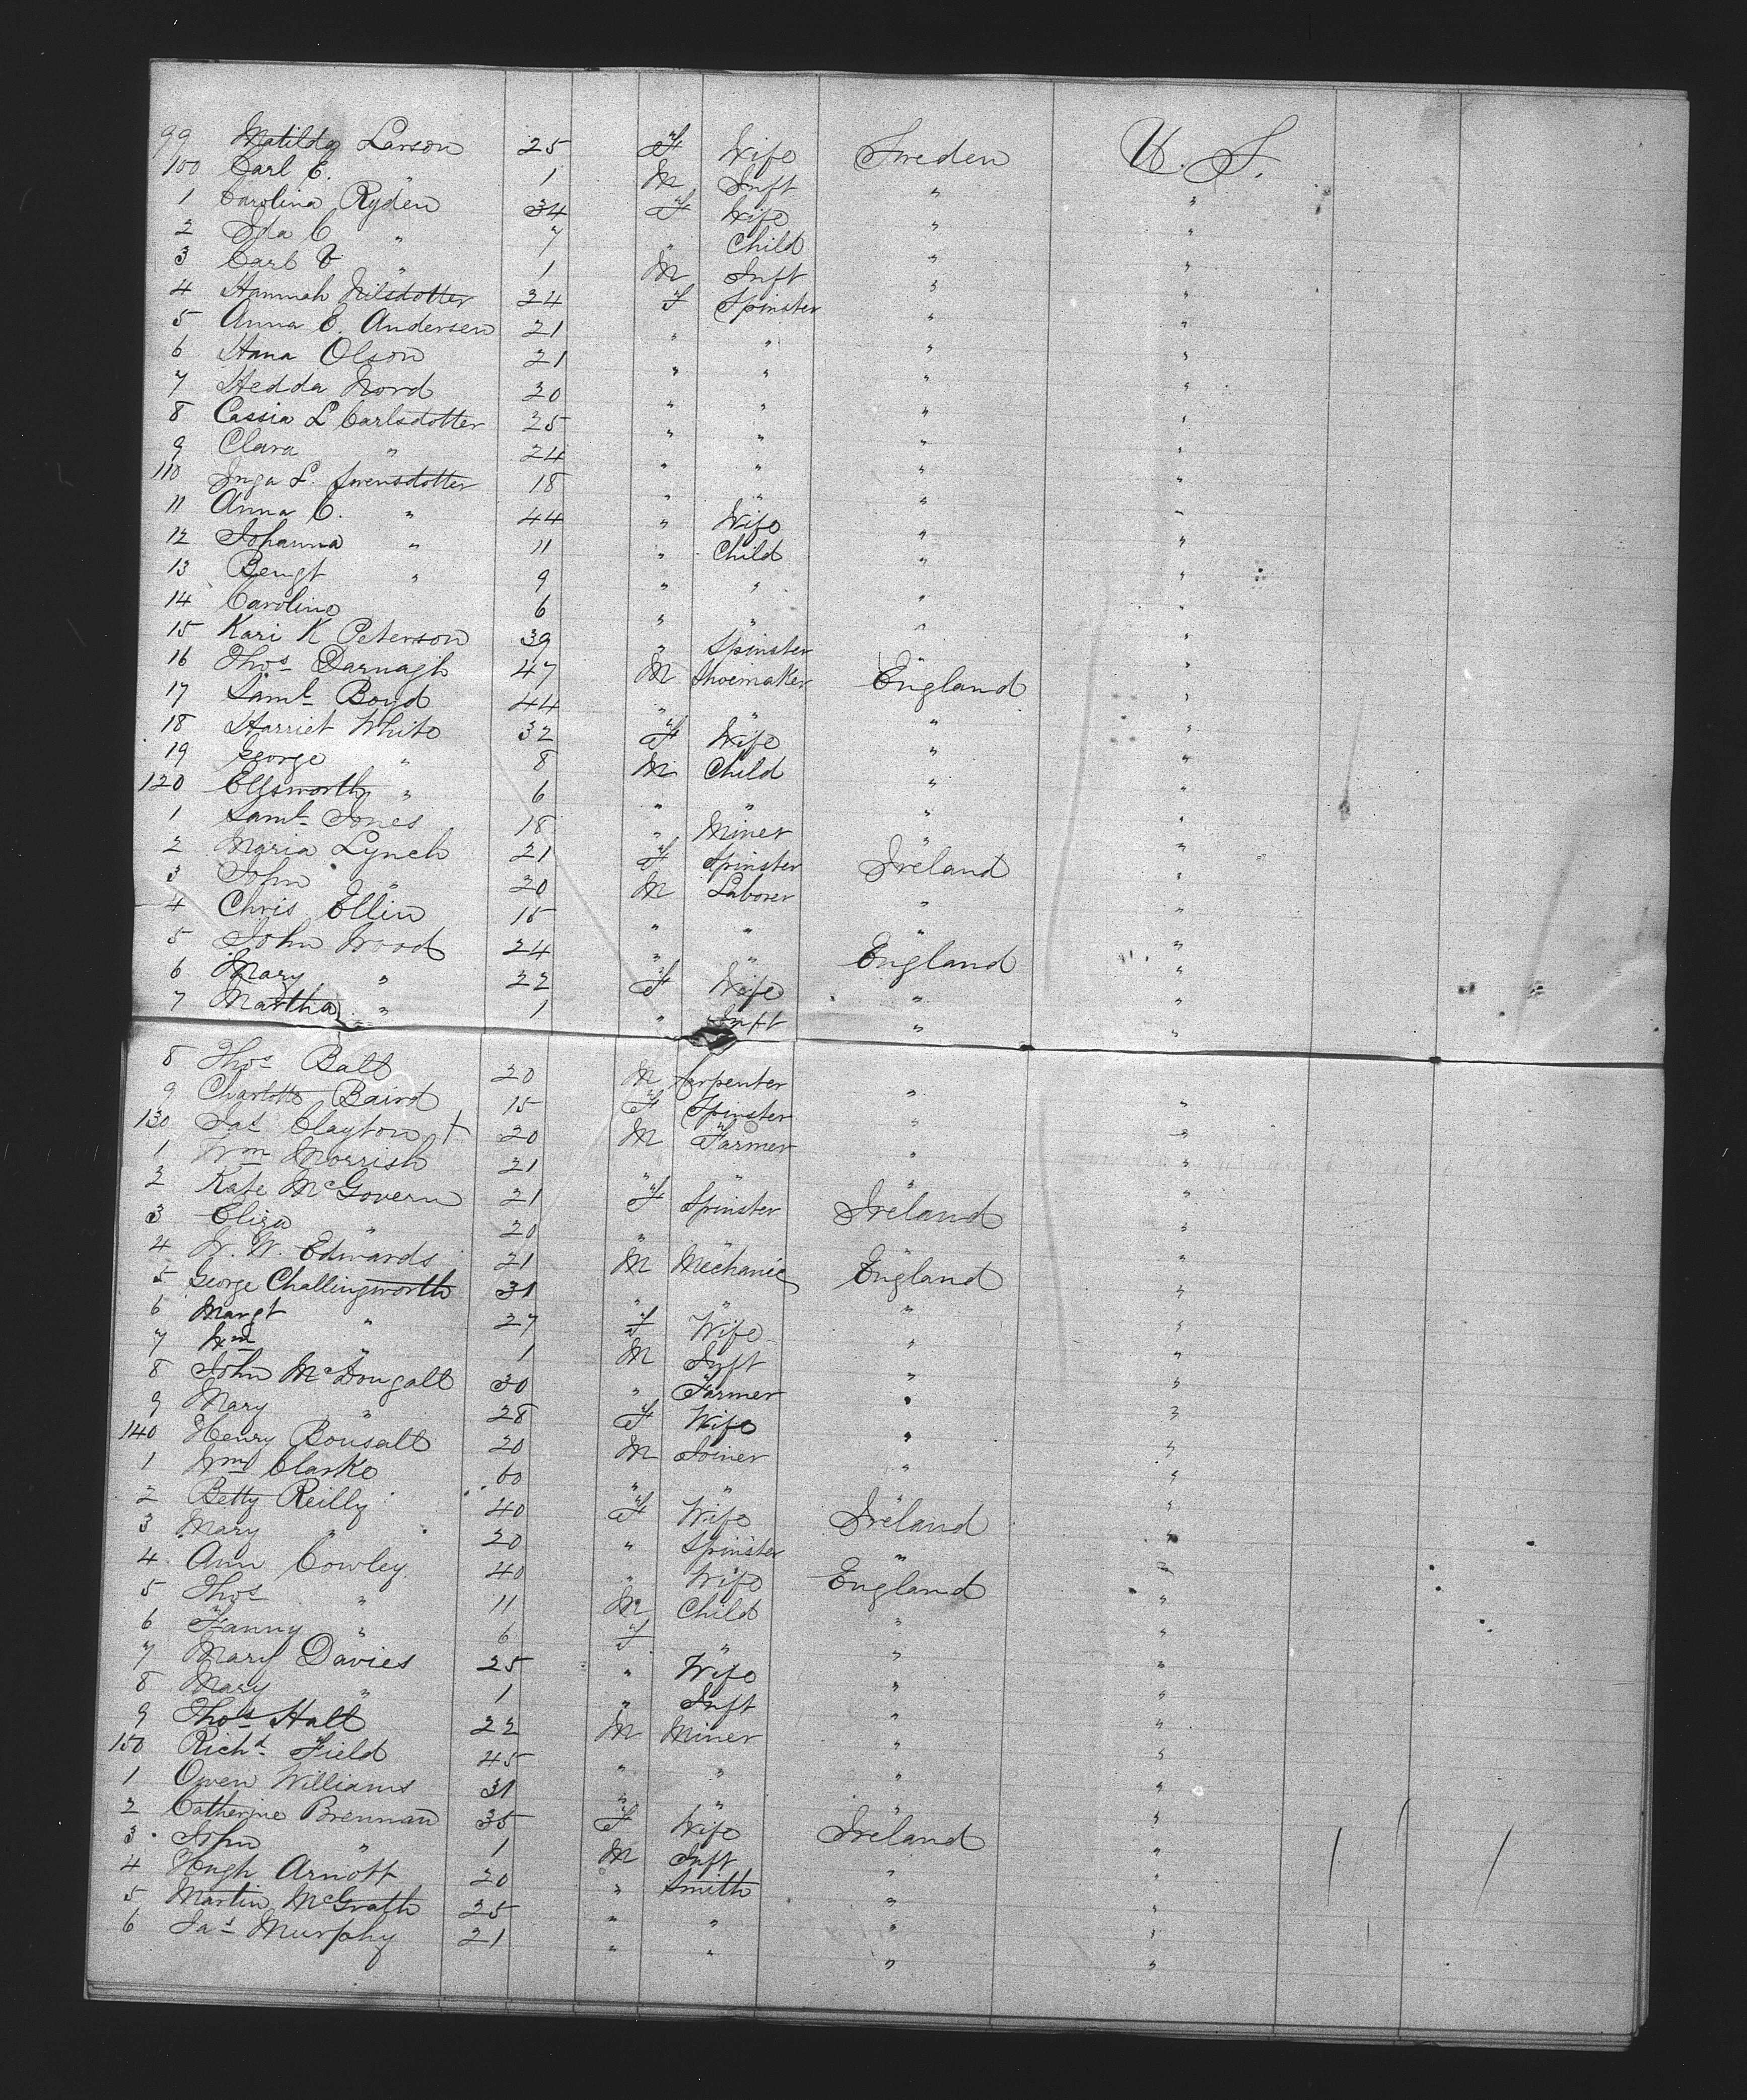 99 Matilda Larson 25 F Wife Sweden U. S.
100 Carl E. " 1 M Inft " "
1 Carolina Ryden 34 F Wife " "
2 Ida C " 7 " Child " "
3 Carl V " 1 M Inft " "
4 Hannah Nilsdotter 24 F Spinster " "
5 Anna E. Andersen 21 " " " "
6 Hana Olson 21 " " " "
7 Hedda Nord 20 " " " "
8 Cassia L Carlsdotter 25 " " " "
9 Clara " 24 " " " "
110 Inga L. Swensdotter 18 " " " "
11 Anna C. " 44 " Wife " "
12 Johanna " 11 " Child " "
13 Bengt " 9 " " " "
14 Carolina 6 " " " "
15 Kari K Peterson 39 " Spinster " "
16 Thos Darnagh 47 M Shoemaker England "
17 Saml Boyd 44 " " " "
18 Harriet White 32 F Wife " "
19 George " 8 M Child " "
120 Ellsworth " 6 " " " "
1 Saml Jones 18 " Miner " "
2 Maria Lynch 21 F Spinster Ireland "
3 John " 20 M Laborer " "
4 Chris Ellin 15 " " " "
5 John Wood 24 " " England "
6 Mary " 22 F Wife " "
7 Martha " 1 " Inft " "
8 Thos Ball 20 M Carpenter " "
9 Charlotte Baird 15 F Spinster " "
130 Jas Clayton + 20 M Farmer " "
1 Wm Morrish 21 " " " "
2 Kate McGovern 21 F Spinster Ireland "
3 Eliza " 20 " " " "
4 J. W. Edwards 21 M Mechanic England "
5 George Challingworth 31 " " " "
6 Margt " 27 F Wife " "
7 Wm " 1 M Inft " "
8 John McDougall 30 " Farmer " "
9 Mary " 28 F Wife " "
140 Henry Bonsall 20 M Joiner " "
1 Wm Clarke 60 " " " "
2 Betty Reilly 40 F Wife Ireland "
3 Mary " 20 " Spinster " "
4 Ann Cowley 40 " Wife England "
5 Thos " 11 M Child " "
6 Fanny " 6 F " " "
7 Mary Davies 25 " Wife " "
8 Mary " 1 " Inft " "
9 Thos Hall 22 M Miner " "
150 Richd Field 45 " " " "
1 Owen Williams 31 " " " "
2 Catherine Brennan 35 F Wife Ireland "
3 John " 1 M Inft " "
4 Hugh Arnott 20 " Smith " "
5 Martin McGrath 25 " " " "
6 Jas Murphy 21 " " " "